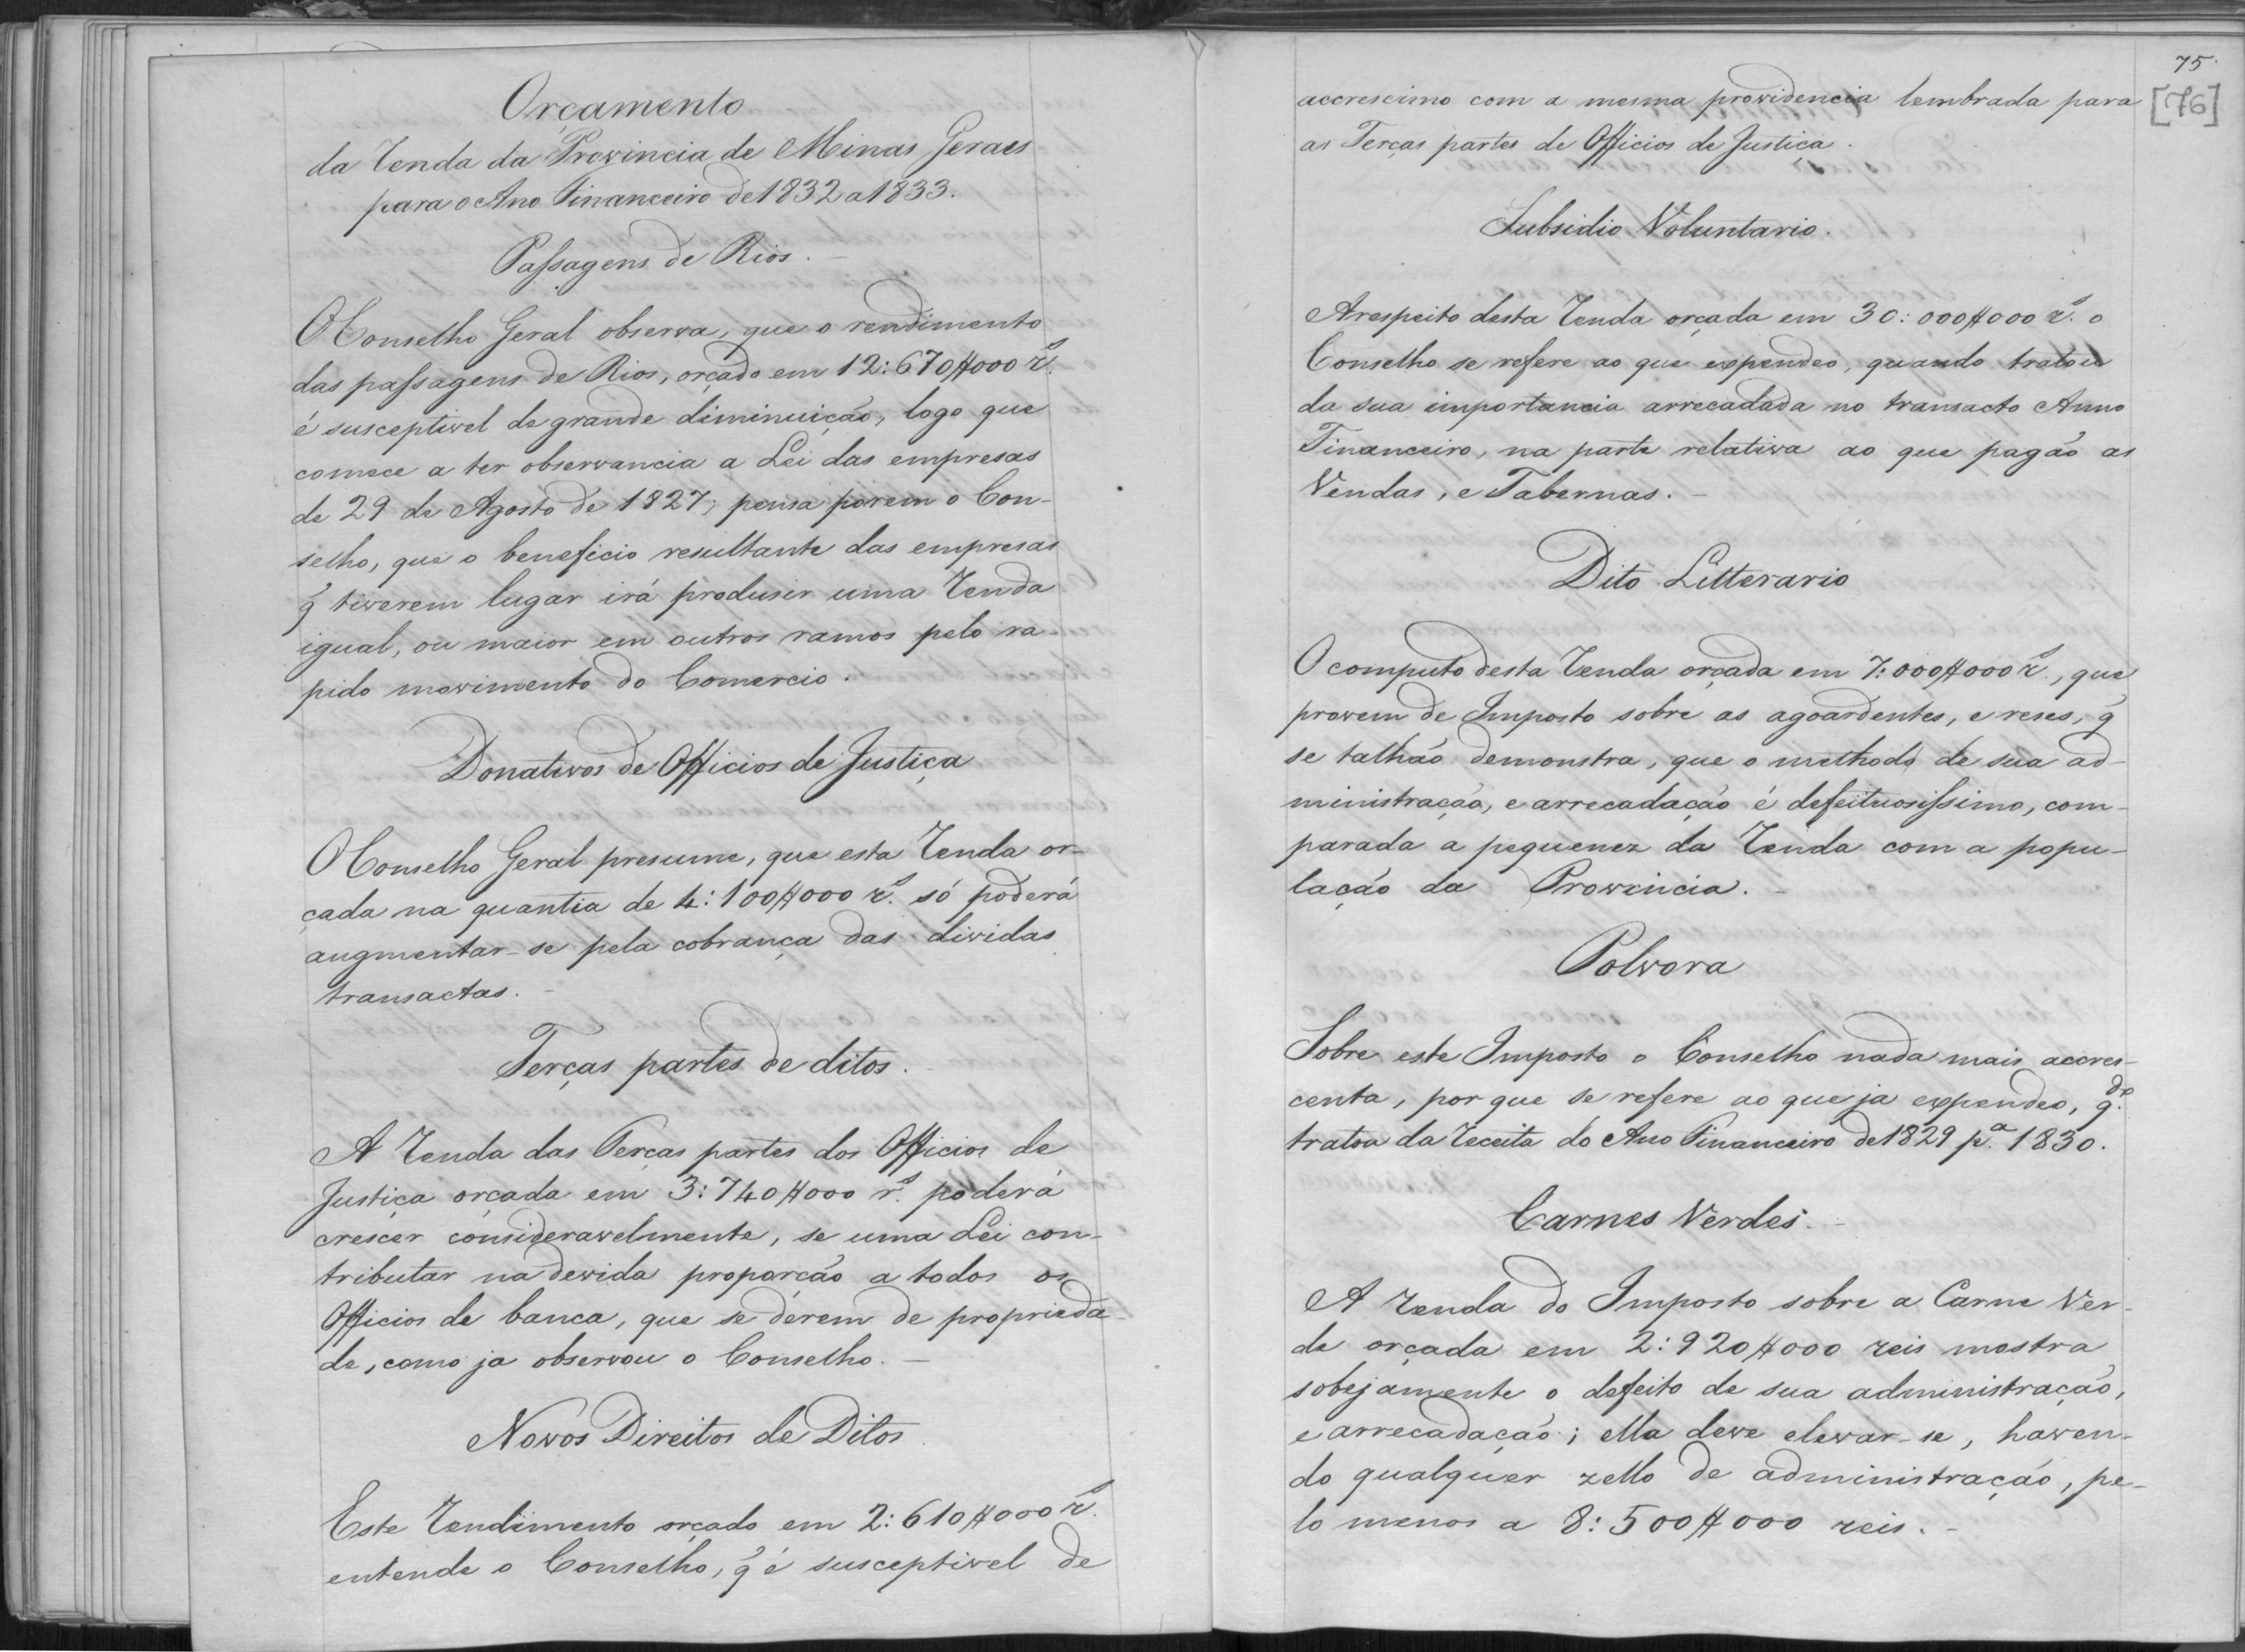 Orçamento
da Renda da Provincia de Minas Geraes
para o Ano Financeiro de 1832 a 1833.
Passagens de Rios.
O Conselho Geral observa, que o rendimento
das passagens de Rios, orçado em 12:670$000 rs.
é susceptivel de grande diminuição, logo que
comece a ter observancia a Lei das empresas
de 29 de Agosto de 1827; pensa porem o Con-
selho, que o beneficio resultante das empresas
q̃ tiverem lugar irá produsir uma Renda
igual, ou maior em outros ramos pelo ra-
pido movimento do Comercio.
Donativos de Officios de Justiça
O Conselho Geral presume, que esta Renda or-
çada na quantia de 4:100$000 rs. só poderá
augmentar-se pela cobrança das dividas
transactas.
Terças partes de ditos.
A Renda das Terças partes dos Officios de
Justiça orçada em 3:740$000 rs. poderá
crescer consideravelmente, se uma Lei con-
tributar na devida proporção a todos os
Officios de banca, que se dérem de proprieda-
de, como ja observou o Conselho.
Novos Direitos de Ditos
Este Rendimento orçado em 2:610$000 rs.
entende o Conselho, q̃ é susceptivel de
75.
[76]
accrescimo com a mesma providencia lembrada para
as Terças partes de Officios de Justiça.
Subsidio Voluntario.
A respeito desta Renda orçada em 30:000$000 rs. o
Conselho se refere ao que expendeo, quando tratou
da sua importancia arrecadada no transacto Anno
Financeiro, na parte relativa ao que pagão as
Vendas, e Tabernas.
Dito Litterario
O computo desta Renda orçada em 7:000$000 rs., que
provem de Imposto sobre as agoardentes, e reses, q̃
se talhão demonstra, que o methodo de sua ad-
ministração, e arrecadação é defeituosissimo, com-
parada a pequenez da Renda com a popu-
lação da Provincia.
Polvora
Sobre este Imposto o Conselho nada mais accres-
centa, por que se refere ao que ja expendeo, q.do
tratou da Receita do Ano Financeiro de 1829 p.a 1830.
Carnes Verdes.
A renda do Imposto sobre a Carne Ver-
de orçada em 2:920$000 reis mostra
sobejamente o defeito de sua administração,
e arrecadação; ella deve elevar-se, haven-
do qualquer zello de administração, pe-
lo menos a 8:500$000 reis.